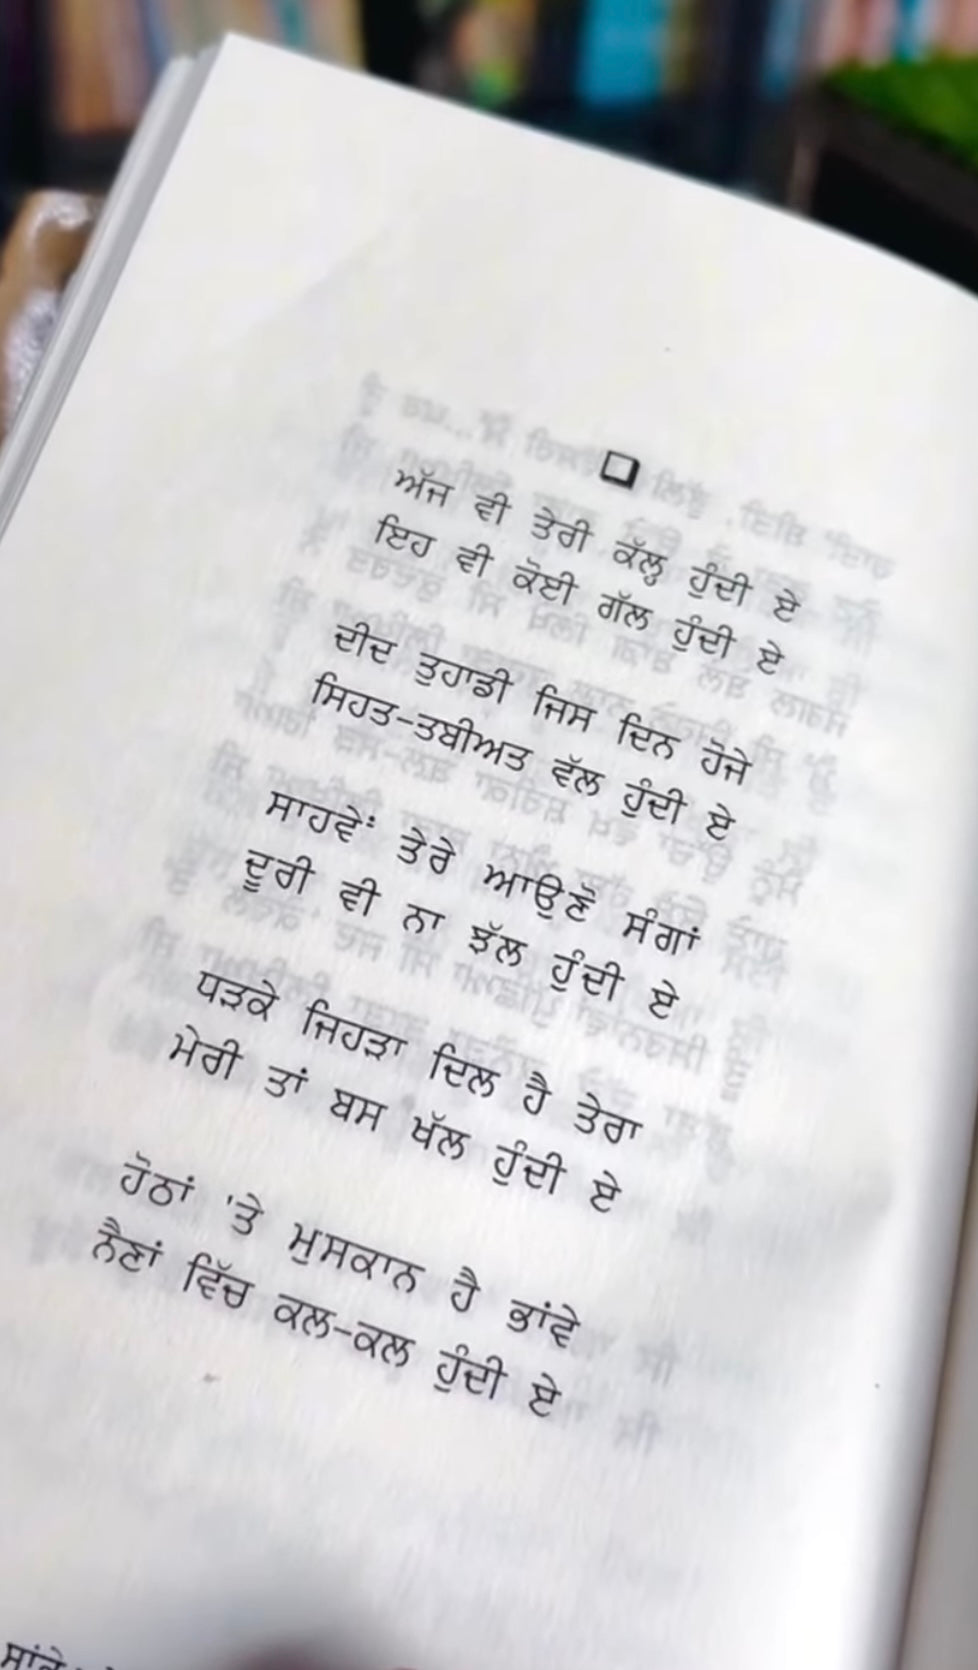 ਅੱਜ ਵੀ ਤੇਰੀ ਕੱਲ੍ਹ ਹੁੰਦੀ ਏ
ਇਹ ਵੀ ਕੋਈ ਗੱਲ ਹੁੰਦੀ ਏ
ਦੀਦ ਤੁਹਾਡੀ ਜਿਸ ਦਿਨ ਹੋਜੇ
ਸਿਹਤ-ਤਬੀਅਤ ਵੱਲ ਹੁੰਦੀ ਏ
ਸਾਹਵੇਂ ਤੇਰੇ ਆਉਣੋਂ ਸੰਗਾਂ
ਦੂਰੀ ਵੀ ਨਾ ਝੱਲ ਹੁੰਦੀ ਏ
ਧੜਕੇ ਜਿਹੜਾ ਦਿਲ ਹੈ ਤੇਰਾ
ਮੇਰੀ ਤਾਂ ਬਸ ਖੱਲ ਹੁੰਦੀ ਏ
ਹੋਠਾਂ 'ਤੇ ਮੁਸਕਾਨ ਹੈ ਭਾਂਵੇ
ਨੈਣਾਂ ਵਿੱਚ ਕਲ-ਕਲ ਹੁੰਦੀ ਏ